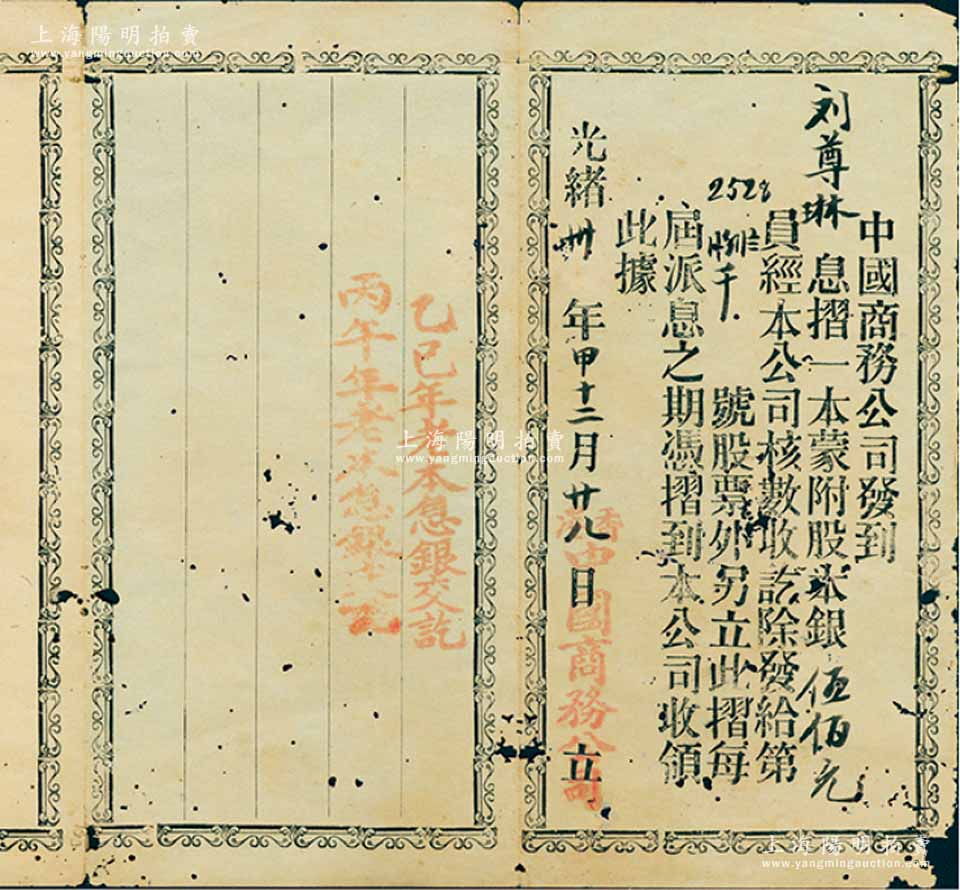 上海陽明拍賣
www.yangmingauction.com
中國商務公司發到
刘尊琳 息摺一本蒙附股本銀 伍佰元
員經本公司核數收訖除發給第
2528 千 號股票外另立此摺每
屆派息之期憑摺到本公司收領
此據
光緒 卅 年 甲十二 月 廿八 日 立
香港中國商務公司
乙巳年老本息銀交訖
丙午年老本息銀交訖
上海陽明拍賣
www.yangmingauction.com
上海陽明拍賣
www.yangmingauction.com